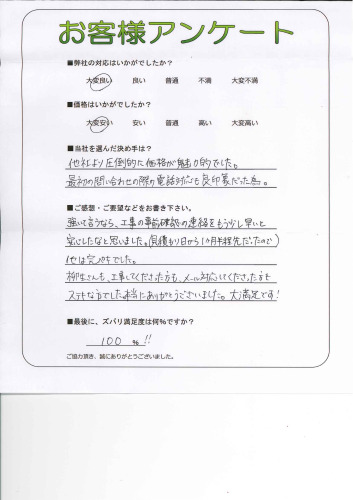 お客様アンケート
■弊社の対応はいかがでしたか？
大変良い 良い 普通 不満 大変不満
■価格はいかがでしたか？
大変安い 安い 普通 高い 大変高い
■当社を選んだ決め手は？
他社より圧倒的に価格が魅力的でした。
最初の問い合わせの際の電話対応も好印象だった為。
■ご感想・ご要望などをお書き下さい。
強いて言うなら、工事の事前確認の連絡をもう少し早いと
安心したなと思いました。(見積もり日から1ヶ月半程先だったので)
他は完ペキでした。
柳生さんも、工事してくださった方も、メール対応してくださった方も
ステキな方でした。本当にありがとうございました。大満足です！
■最後に、ズバリ満足度は何％ですか？
100 ％!!
ご協力頂き、誠にありがとうございました。